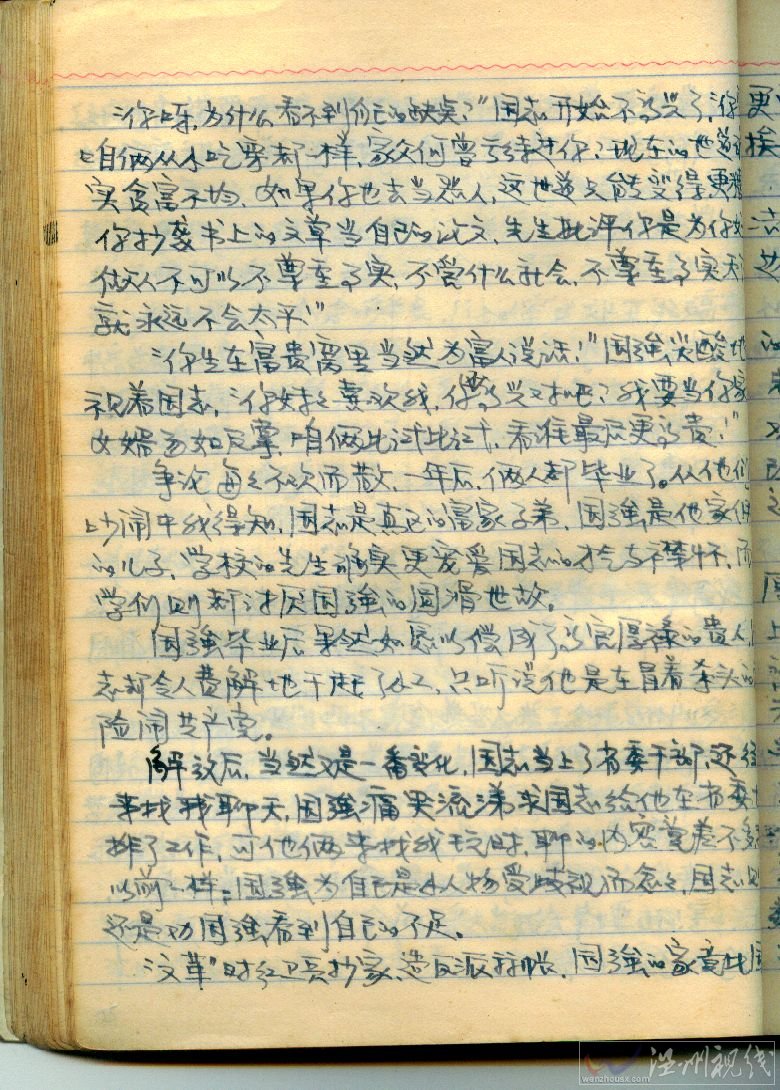 "你呀,为什么看不到自己的缺点?"国志开始不高兴了,"你
咱俩从小吃穿都一样,家父何曾亏待过你?现在的世道
实贫富不均,如果你也去当恶人,这世道只能变得更糟
你抄袭书上的文章当自己的论文,先生批评你是为你好
做人不可以不尊重事实,不管什么社会,不尊重事实天
就永远不会太平!"
"你生在富贵窝里当然为富人说话!"国强尖酸地
视着国志,"你妹妹喜欢我,你不高兴对吧?我要当你家
女婿易如反掌,咱俩比试比试,看谁最后更高贵!"
争论每每不欢而散,一年后,俩人都毕业了。从他们
吵闹中我得知,国志是真正的富家子弟,国强是他家佣
的儿子,学校的先生确实更宠爱国志的才气与襟怀,而
学们则都讨厌国强的圆滑世故。
国强毕业后果然如愿以偿成了高官厚禄的贵人,
志却令人费解地干起了地工,只听说他是在冒着杀头的
险闹共产党。
解放后,当然又是一番变化,国志当上了省委干部,还往
来找我聊天,国强痛哭流涕求国志给他在省委
排了工作,可他俩来找我玩时,聊的内容竟差不多
以前一样:国强为自己是小人物受歧视而忿忿,国志则
还是劝国强看到自己的不足。
"文革"时红卫兵抄家,造反派算帐,国强的家竟比国
温州视线
www.wenzhousx.com